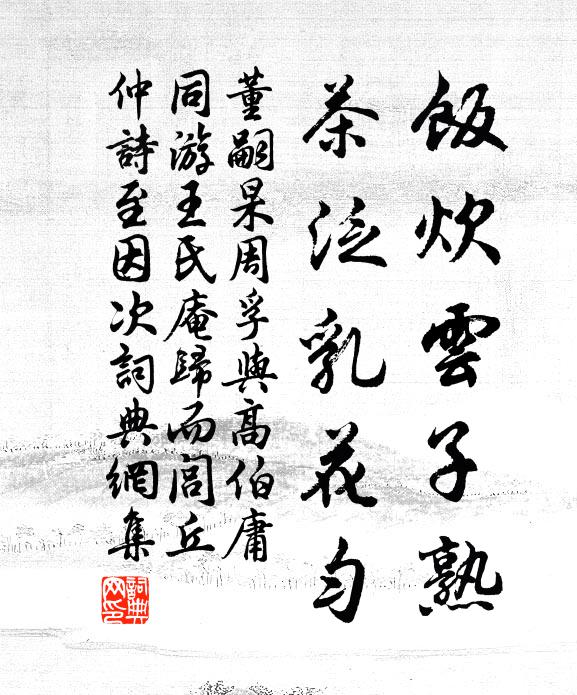 飯炊雲子熟
茶泛乳花勻
董嗣杲周孚與高伯庸
同游王氏庵歸而閭丘
仲詩至因次詞典網集
詞典